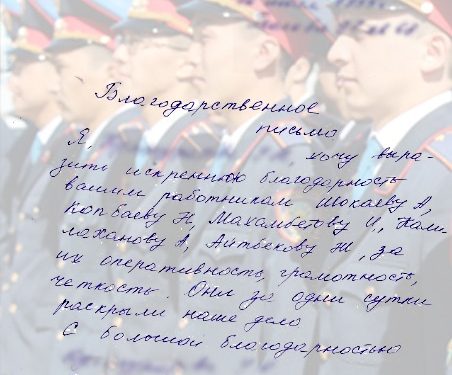 Благодарственное
письмо
Я, хочу выра-
зить искреннюю благодарность
вашим работникам Шокаеву А,
Копбаеву Н, Махамбетову И,
лаханову А, Айтбекову Ж, за
их оперативность, грамотность,
четкость. Они за одни сутки
раскрыли наше дело
С большой благодарностью